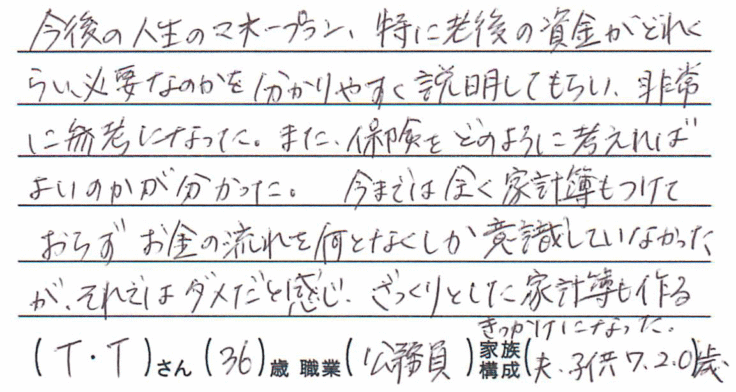 今後の人生のマネープラン、特に老後の資金がどれく
らい必要なのかを分かりやすく説明してもらい、非常
に参考になった。また、保険をどのように考えれば
よいのかが分かった。 今までは全く家計簿もつけて
おらずお金の流れを何となくしか意識していなかった
が、それではダメだと感じ、ざっくりとした家計簿も作る
きっかけになった。
(T・T)さん(36)歳 職業(公務員)家族構成(夫、子供7、2、0)歳